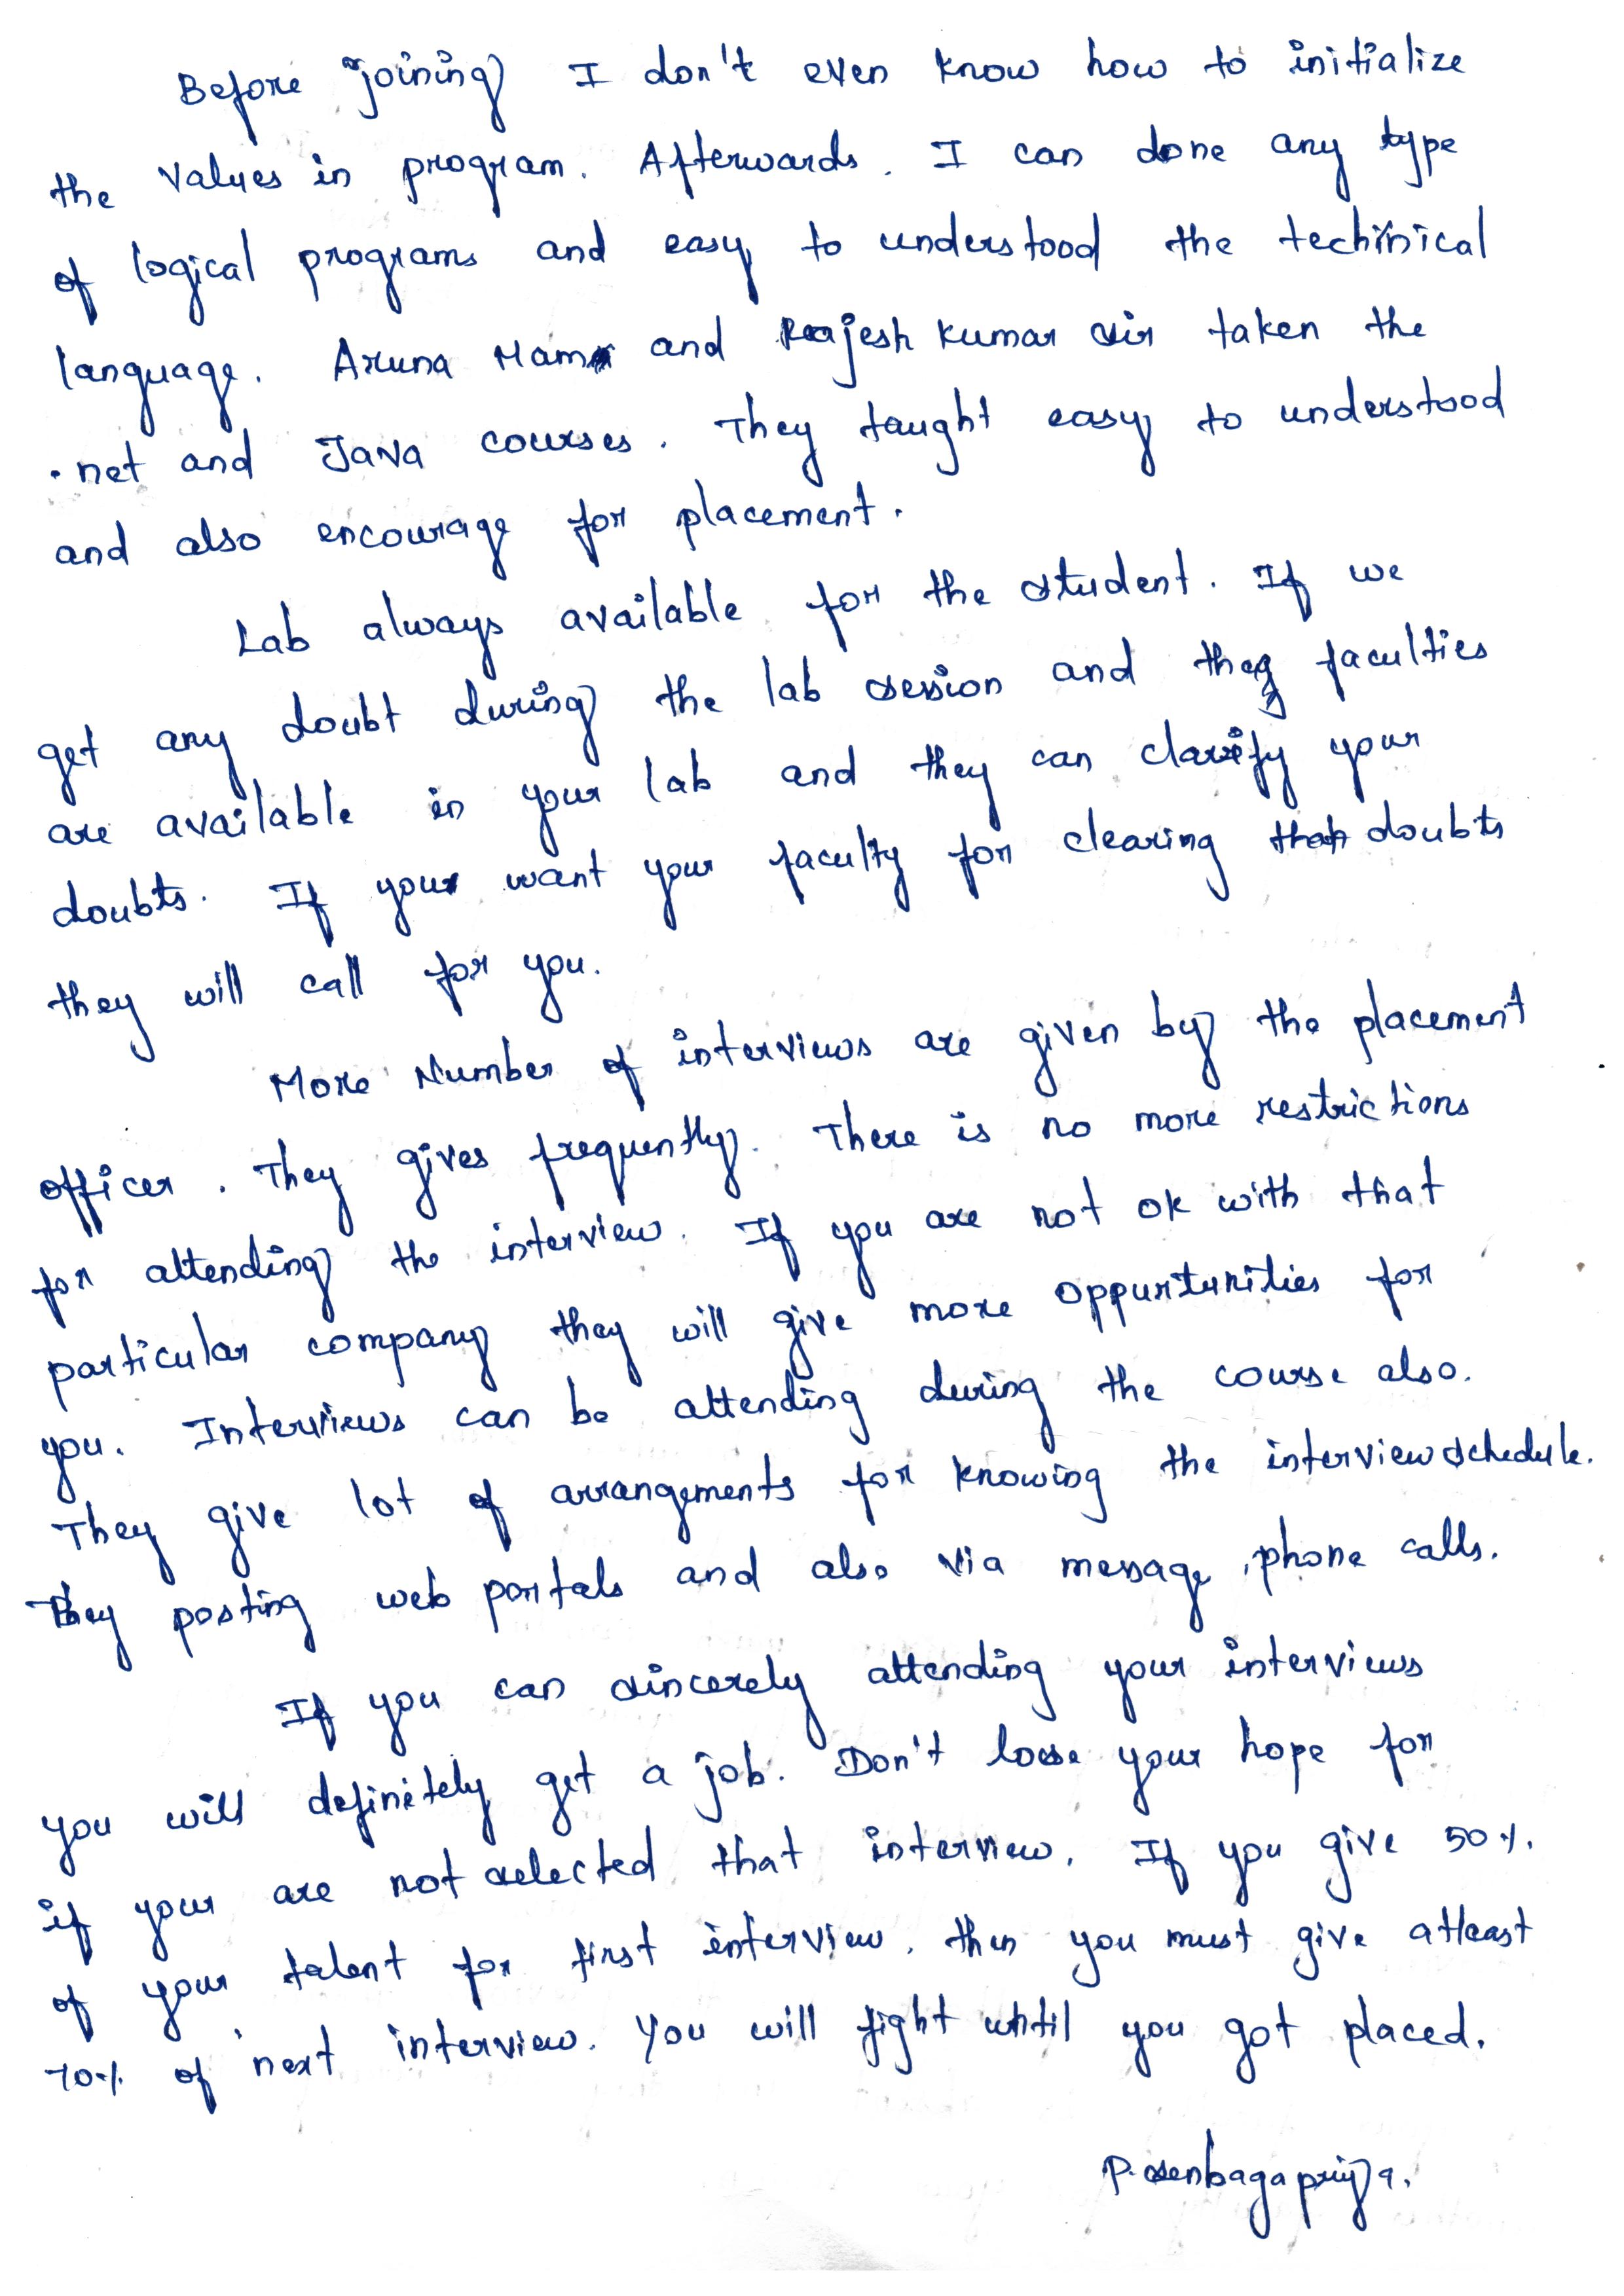 Before joining I don't even know how to initialize
the values in program. Afterwards. I can done any type
of logical programs and easy to understood the techinical
language. Aruna Mam and Rajesh Kumar sir taken the
.net and Java courses. They taught easy to understood
and also encourage for placement.
Lab always available for the student. If we
get any doubt during the lab session and they faculties
are available in your lab and they can clarify your
doubts. If your want your faculty for clearing that doubts
they will call for you.
More Number of interviews are given by the placement
officer. They gives frequently. There is no more restrictions
for attending the interview. If you are not ok with that
particular company they will give more oppurtunities for
you. Interviews can be attending during the course also.
They give lot of arrangements for knowing the interview schedule.
They posting web portals and also via message, phone calls.
If you can sincerely attending your interviews
you will definitely get a job. Don't loose your hope for
if your are not selected that interview. If you give 50%
of your talent for first interview, then you must give atleast
70% of next interview. You will fight until you got placed.
P. Senbagapriya.